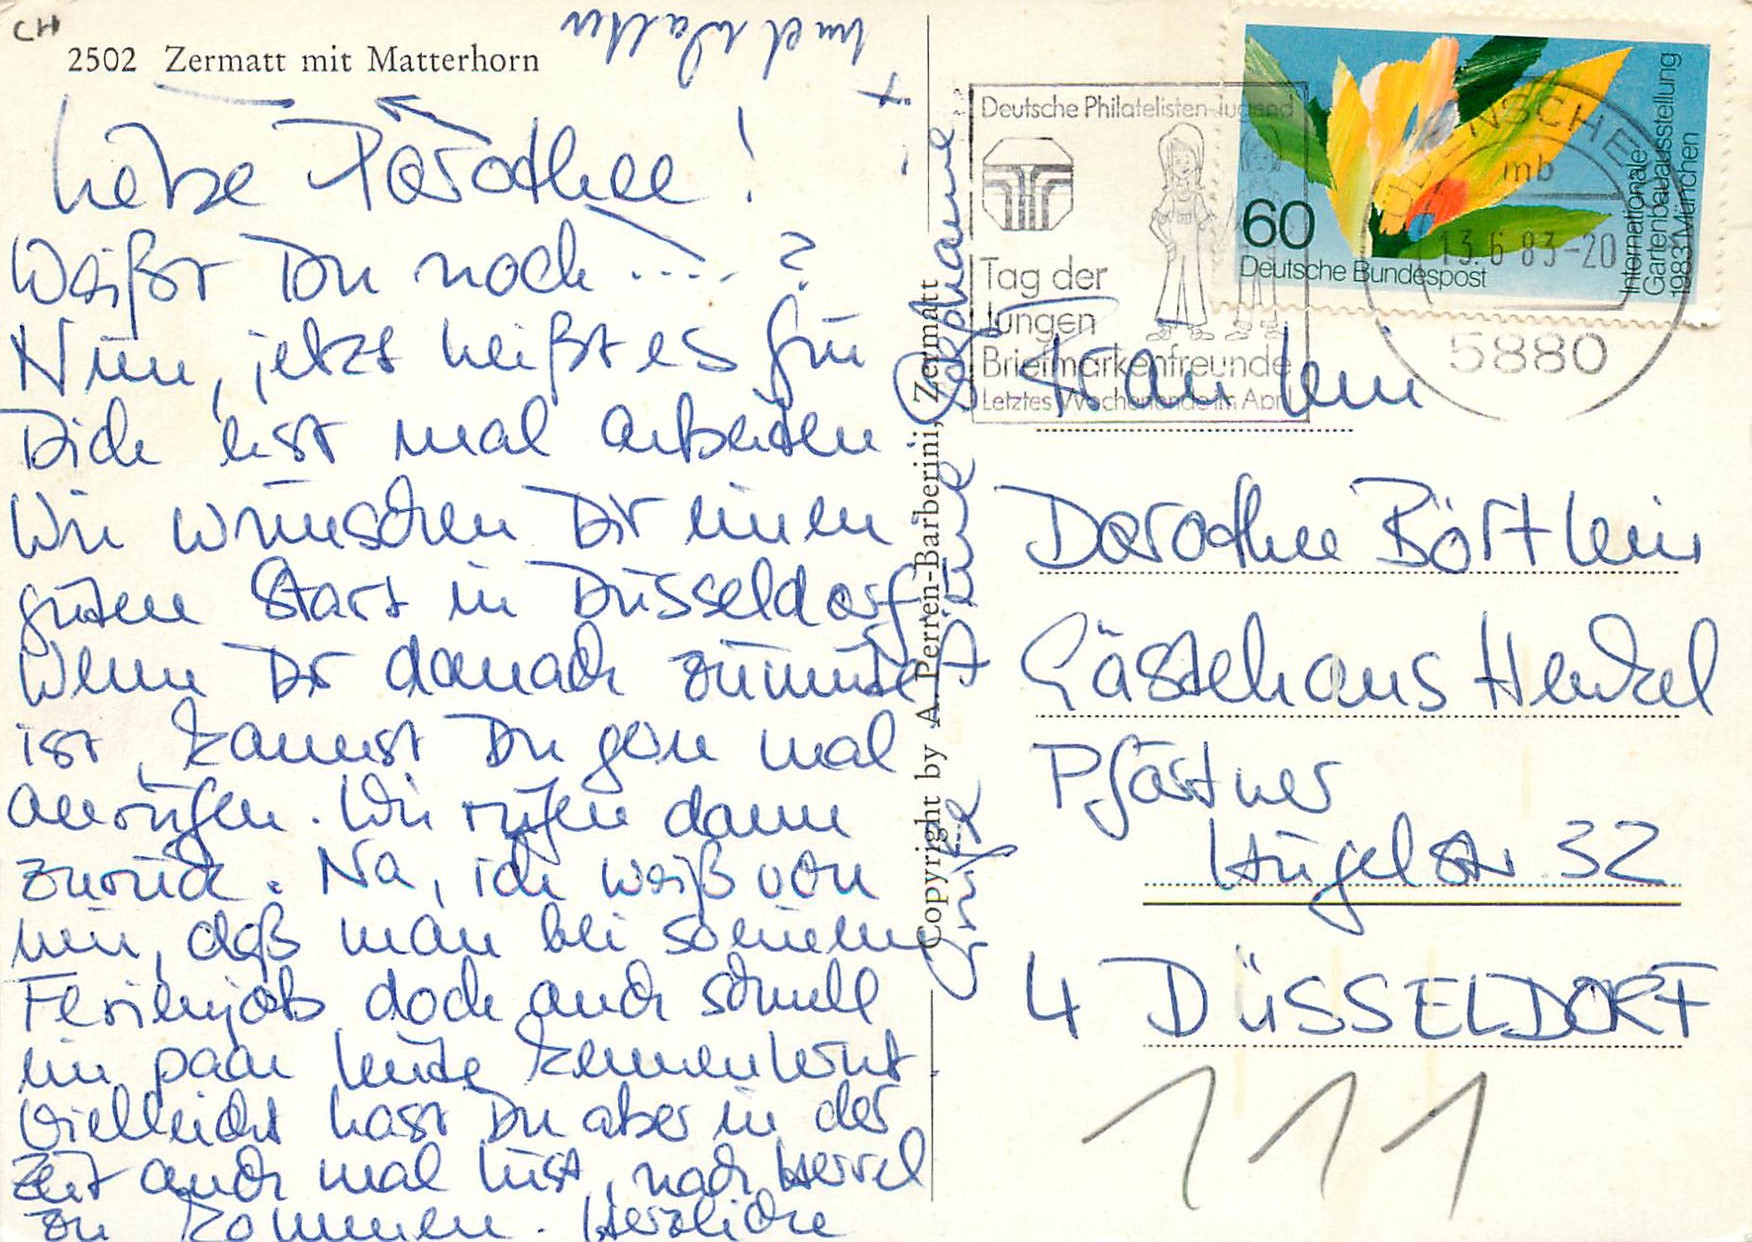 CH
2502 Zermatt mit Matterhorn
Liebe Dorothee!
Weißt Du noch .....?
Nun, jetzt heißt es für
Dich erst mal arbeiten
Wir wünschen Dir einen
guten Start in Düsseldorf
Wenn Dir danach zumute
ist, kannst Du gern mal
anrufen. Wir rufen dann
zurück. Na, ich weiß von
mir, daß man bei so einem
Ferienjob doch auch schnell
ein paar Leute kennenlernt
Vielleicht hast Du aber in der
Zeit auch mal Lust, nach
zu kommen. Herzliche
Grüße Deine Stephanie
+ und Walter
Copyright by A. Perren-Barberini, Zermatt
Deutsche Philatelisten-Jugend
Tag der
Jungen
Briefmarkenfreunde
Letztes Wochenende im April
60
Deutsche Bundespost
Internationale
Gartenbauausstellung
1983 München
mb
13.6.83-20
5880
Fräulein
Dorothee Börtlein
Gästehaus Henkel
Pförtner
Hügelstr. 32
4 DÜSSELDORF
111